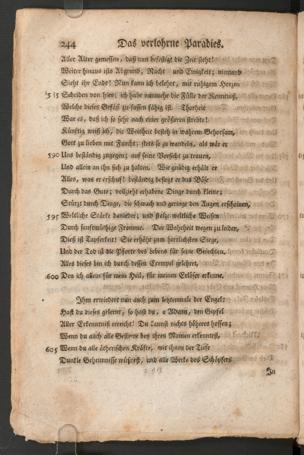 244 Das verlohrne Paradies.
Aller Alter gemessen, daß nun befestigt die Zeit steht!
Weiter hinaus ists Abgrund, Nacht und Ewigkeit; niemand
Sieht ihr Ende! Nun kann ich belehrt, mit ruhigem Herzen
Scheiden von hier; ich habe nunmehr die Fülle der Kenntniß,
Welche dieses Gefäß zu fassen fähig ist. Thorheit
War es, daß ich so sehr nach einer größeren strebte!
Künftig weiß ich, die Weisheit besteh in wahrem Gehorsam,
Gott zu lieben mit Furcht; stets so zu wandeln, als wär er
590 Uns beständig zugegen; auf seine Vorsicht zu trauen,
Und allein an ihn sich zu halten. Wie gnädig erhält er
Alles, was er erschuf! beständig besiegt er das Böse
Durch das Gute; vollzieht erhabene Dinge durch kleine;
Stürzt durch Dinge, die schwach und geringe den Augen erscheinen,
595 Weltliche Stärke danieder; und stolze weltliche Weisen
Durch sanftmüthige Fromme. Der Wahrheit wegen zu leiden,
Dieß ist Tapferkeit! Sie erhöht zum herrlichsten Siege,
Und der Tod ist die Pforte des Lebens für seine Gerechten.
Alles dieses bin ich durch dessen Exempel gelehret,
600 Den ich allein für mein Heil, für meinen Erlöser erkenne.
Ihm erwiedert nun auch zum letztenmale der Engel:
Hast du dieses gelernt, so hast du, o Adam, den Gipfel
Aller Erkenntniß erreicht! Du kannst nichts höheres hoffen;
Wenn du auch alle Gestirne bey ihren Namen erkenntest,
605 Wenn du alle ätherischen Kräfte, mit ihnen der Tiefe
Dunkle Geheimnisse wüßtest, und alle Werke des Schöpfers
In